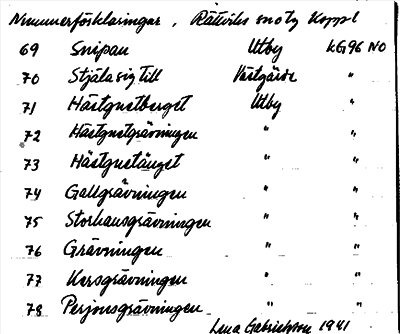 Nummerförklaringar, Rättviks snctg Koppl
69 Snipan Utby LG96 NO
70 Stjäla sig till Västgärde "
71 Hästgnetberget Utby "
72 Hästgnetgrävningen " "
73 Hästgnetänget " "
74 Gallgrävningen " "
75 Storhansgrävningen " "
76 Grävningen " "
77 Korsgrävningen " "
78 Perjonsgrävningen " "
Lena Gabrielsson 1941